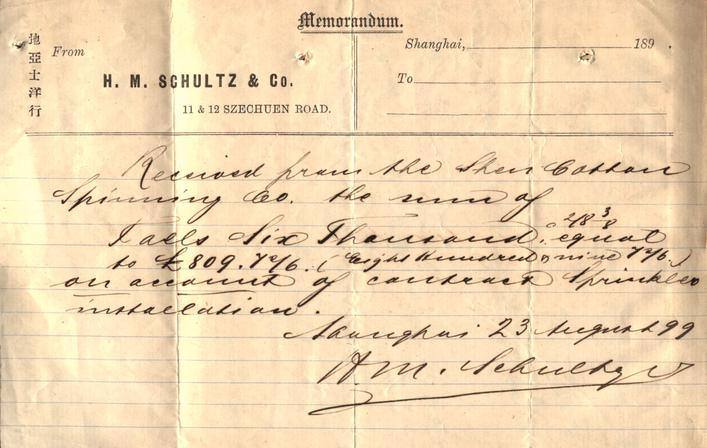 Memorandum.
地亞士洋行
From
Shanghai, 189 .
H. M. SCHULTZ & Co.
To
11 & 12 SZECHUEN ROAD.
Received from the Shen Cotton
Spinning Co. the sum of
Taels Six Thousand, @ 2/8 3/8 equal
to £809.7s/6. (Eight Hundred & nine 7s/6.)
on account of contract Sprinkler
installation.
Shanghai 23 August 99
H. M. Schultz